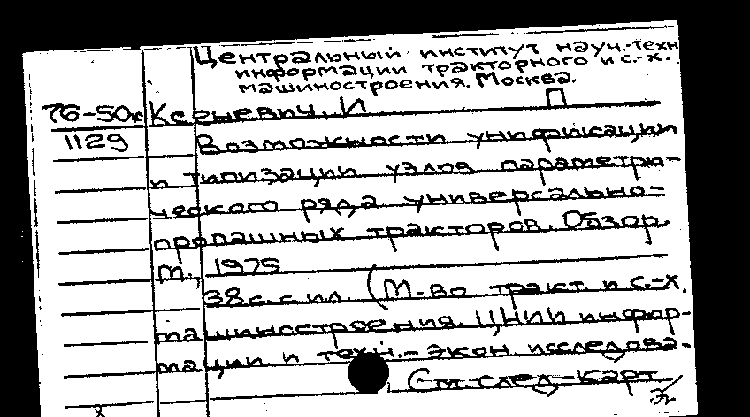 Центральный институт науч.-техн.
информации тракторного и с.-х.
машиностроения. Москва.
76-50к
1129
И П
Возможности унификации
и типизации узлов параметри-
ческого ряда универсально-
пропашных тракторов. Обзор.
М., 1975
38 с. с ил. (М-во тракт. и с.-х.
машиностроения. ЦНИИ инфор-
мации и техн.-экон. исследова-
См. след. карт.